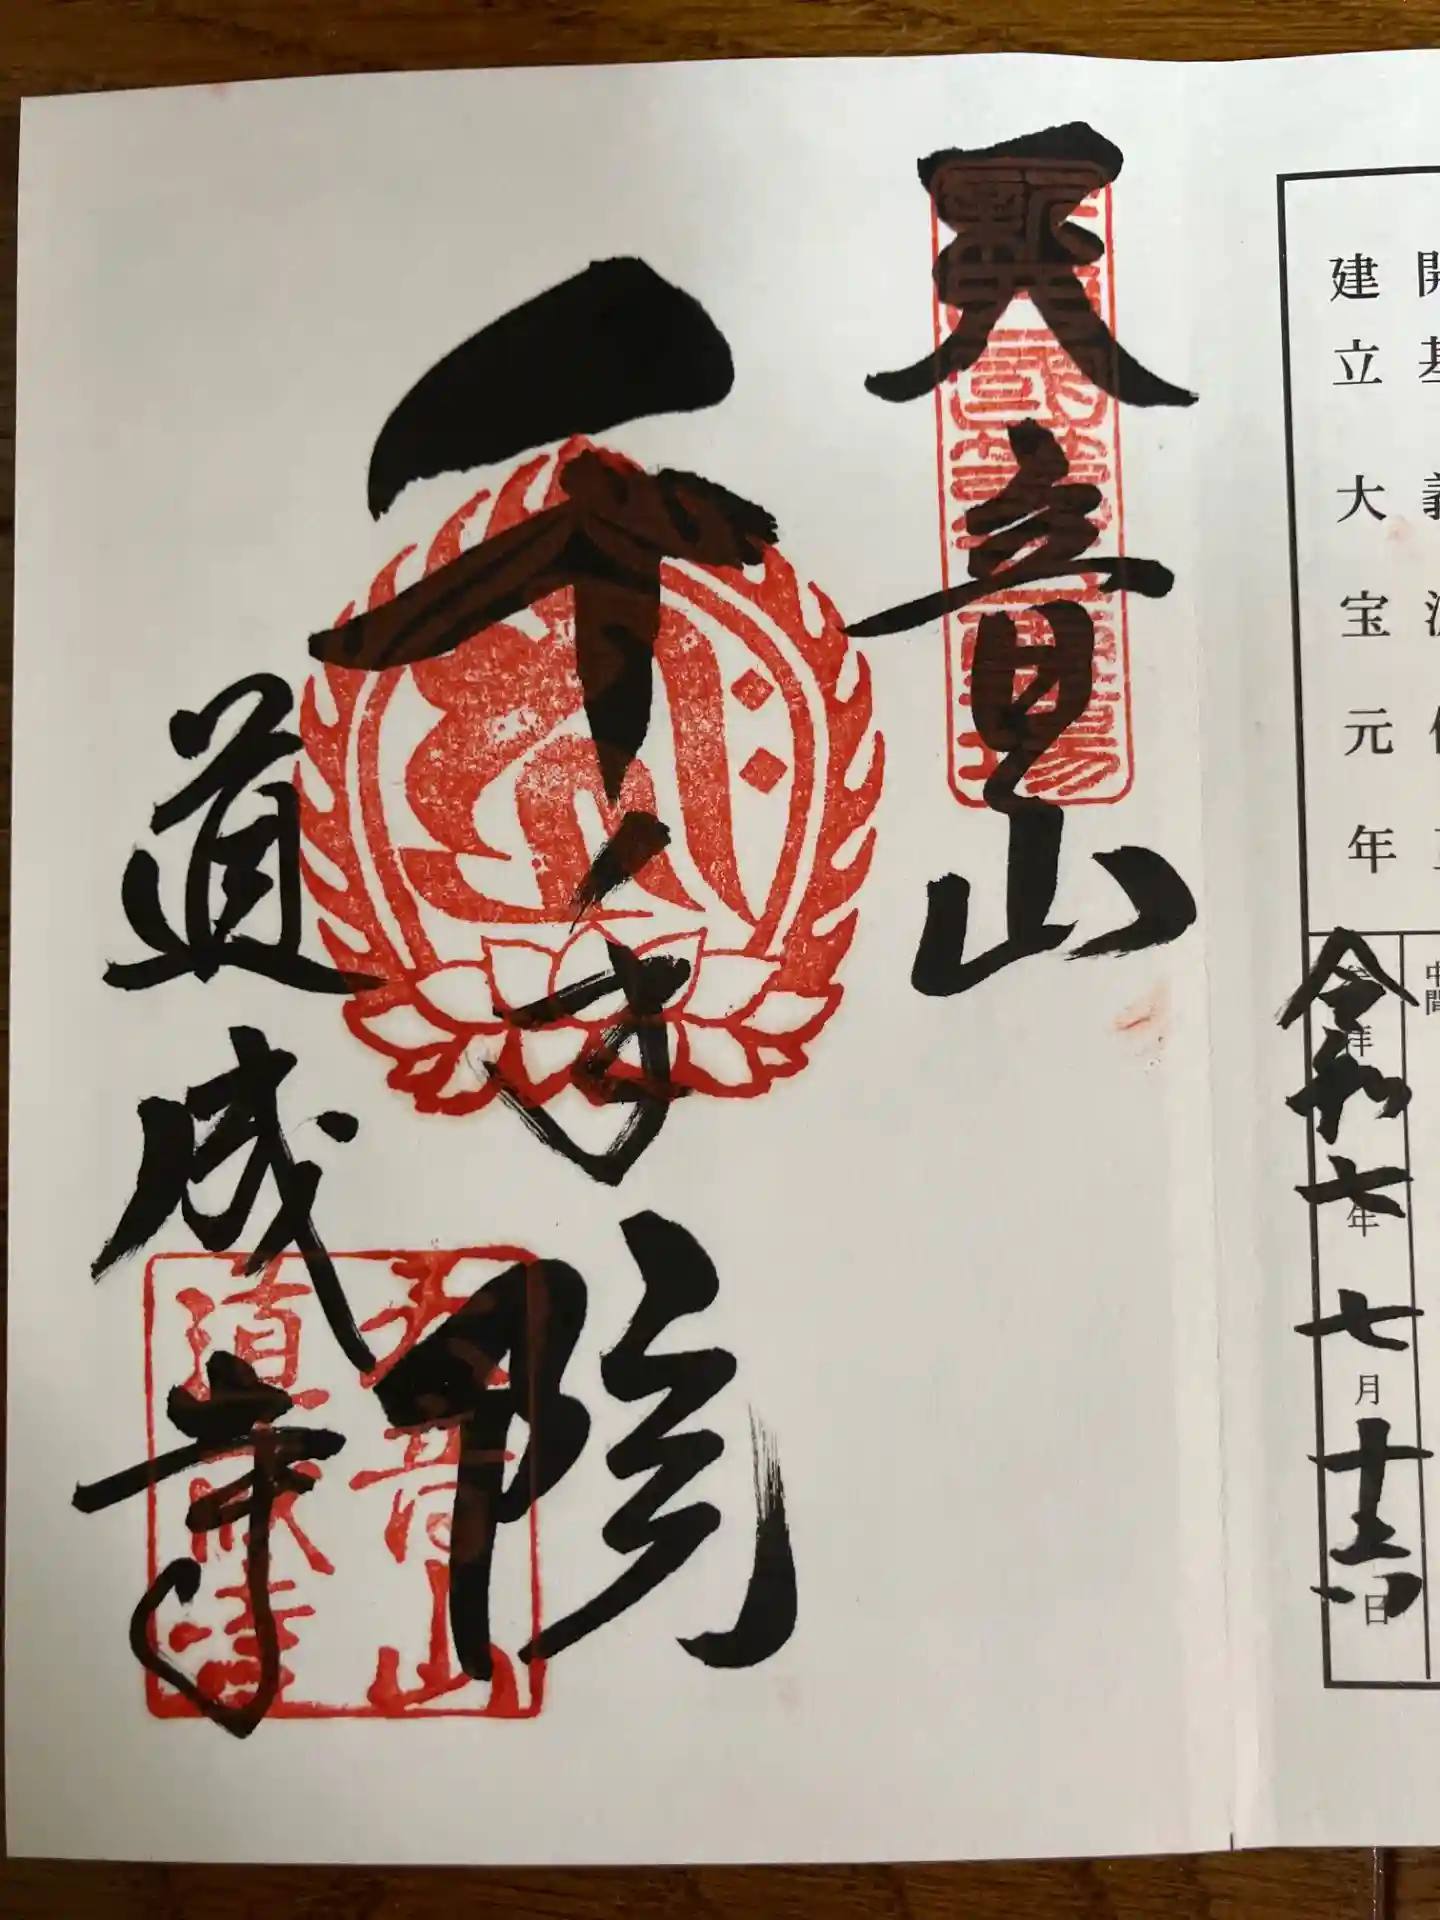 開基 義
建立 大宝元年
中開
令和七年七月十六日
天音山
千手院
道成寺
天音山
道成寺